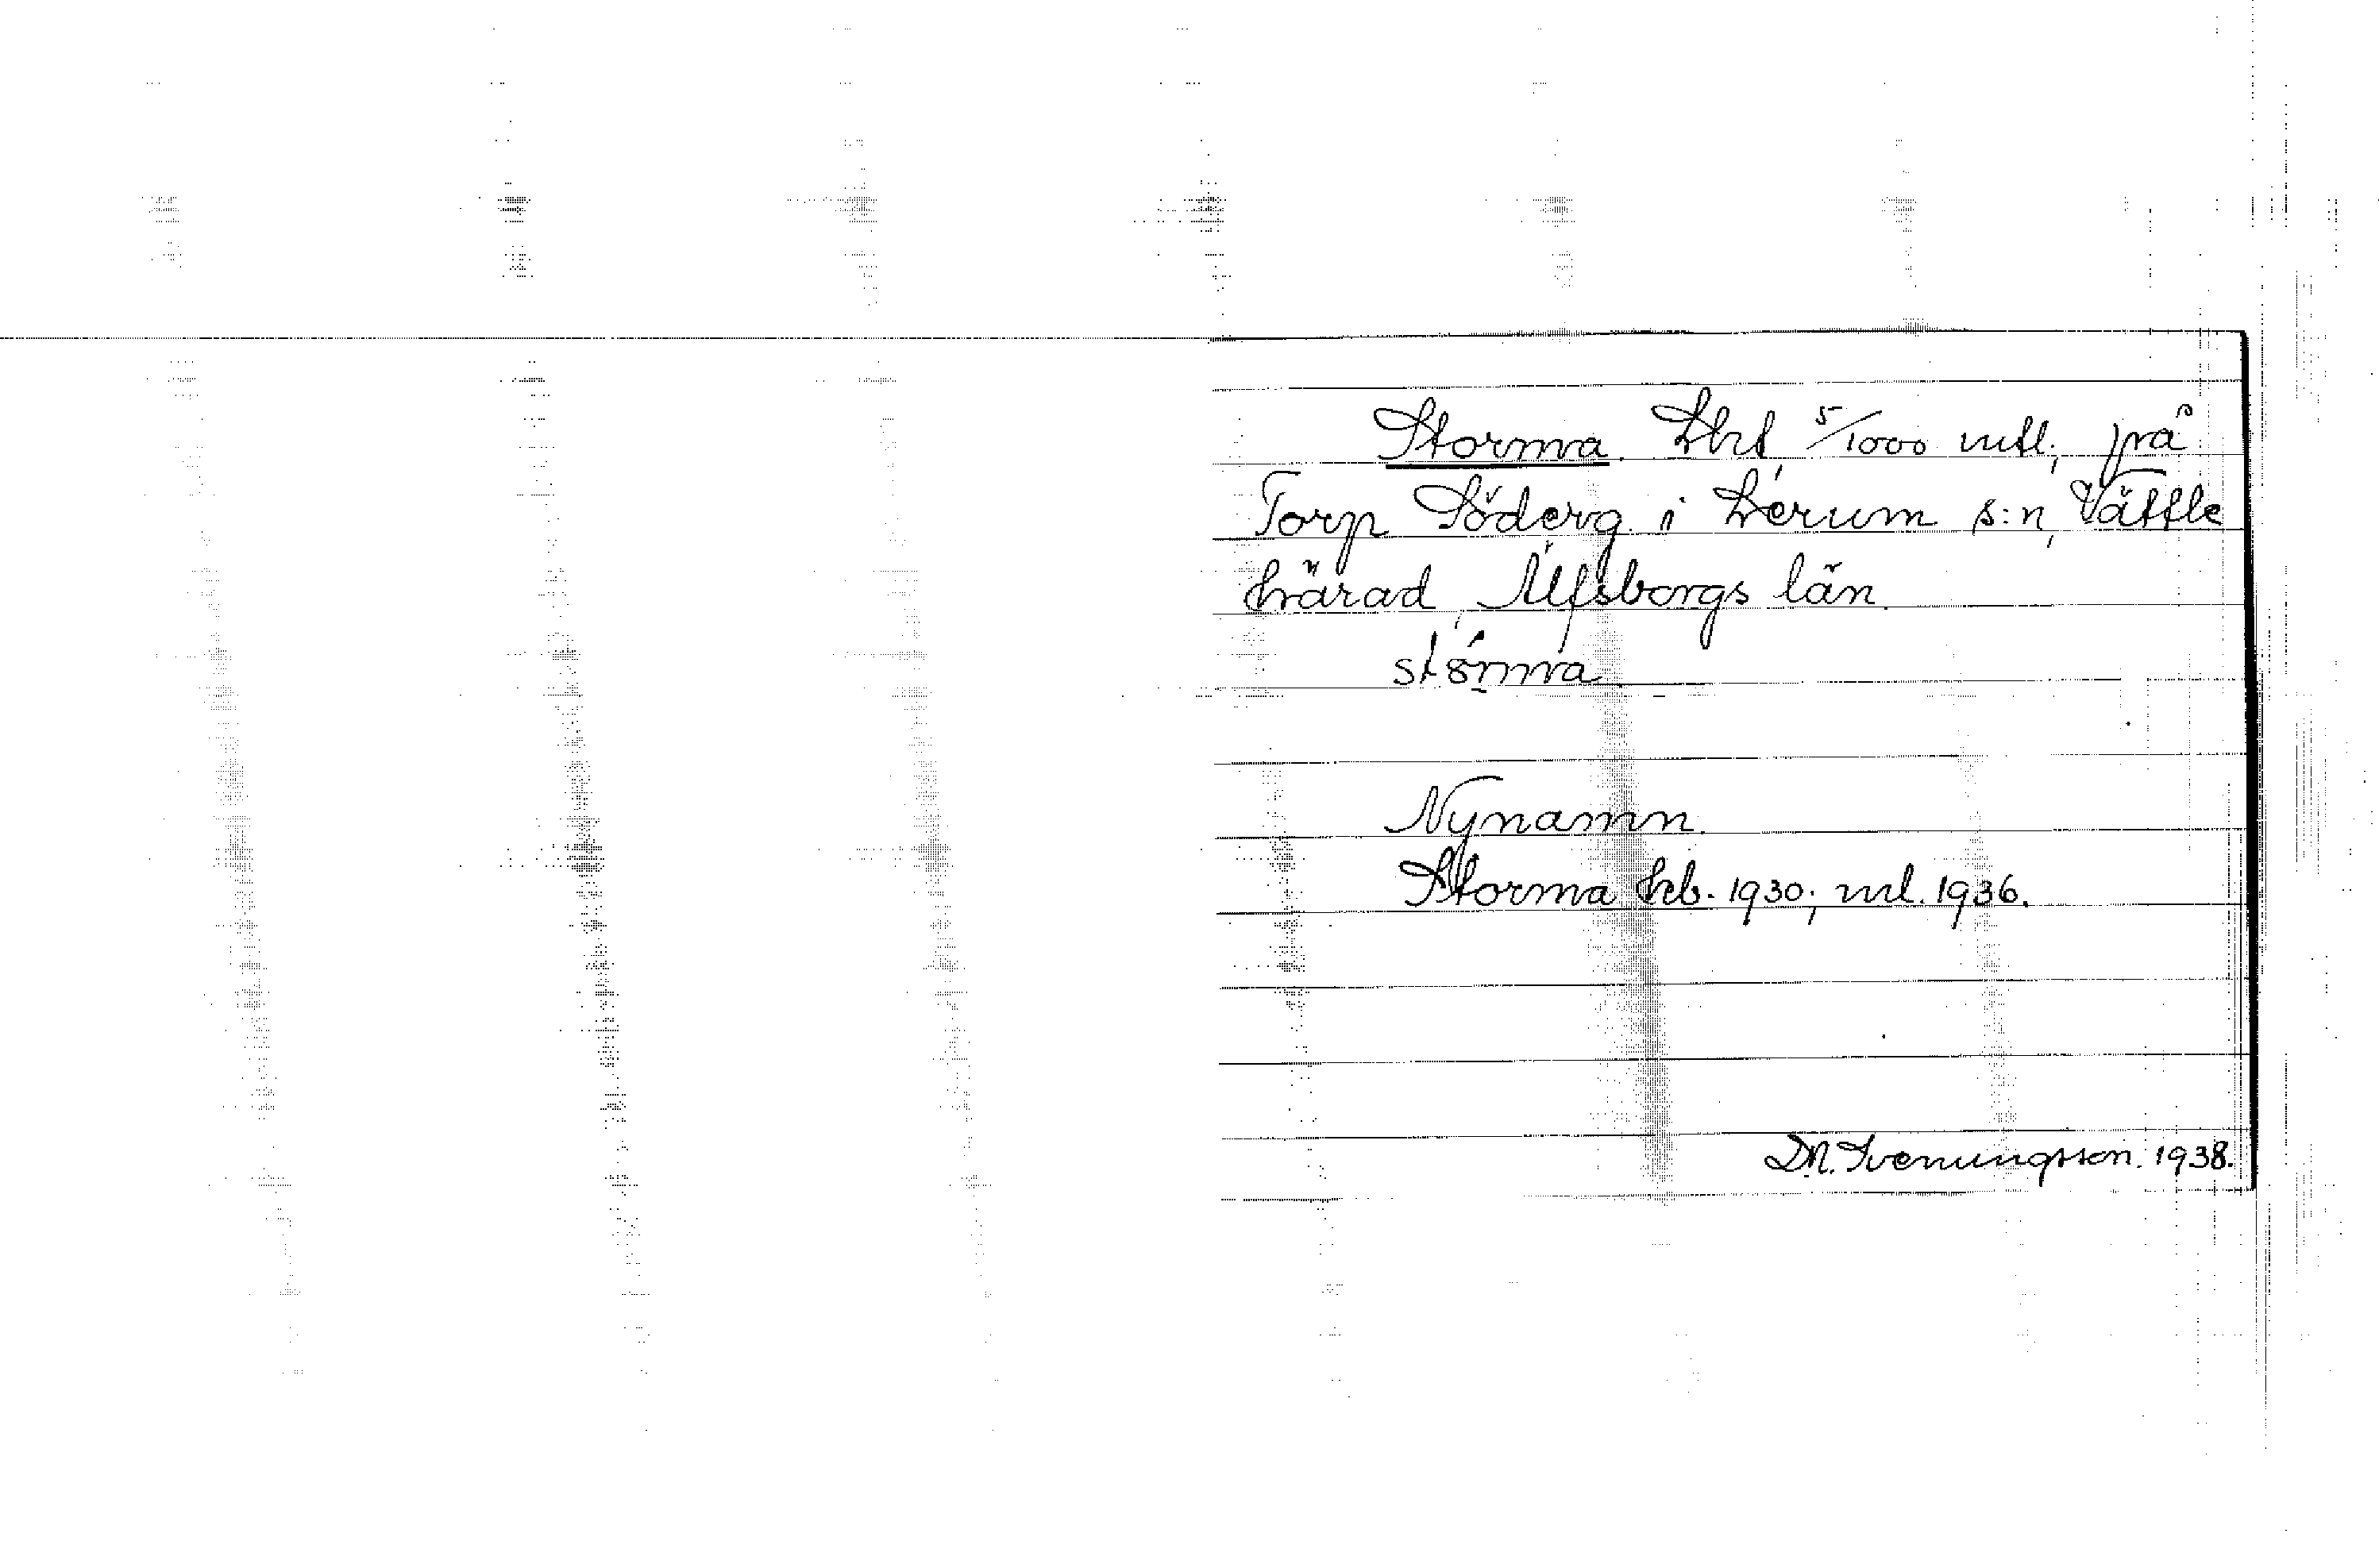 Storma. Lht 5/1000 mtl, på
Torp Söderg. i Lerum s:n, Vättle
härad, Älfsborgs län.
Nynamn.
Storma frb. 1930; ml. 1936.
D.N. Svenungsson. 1938.